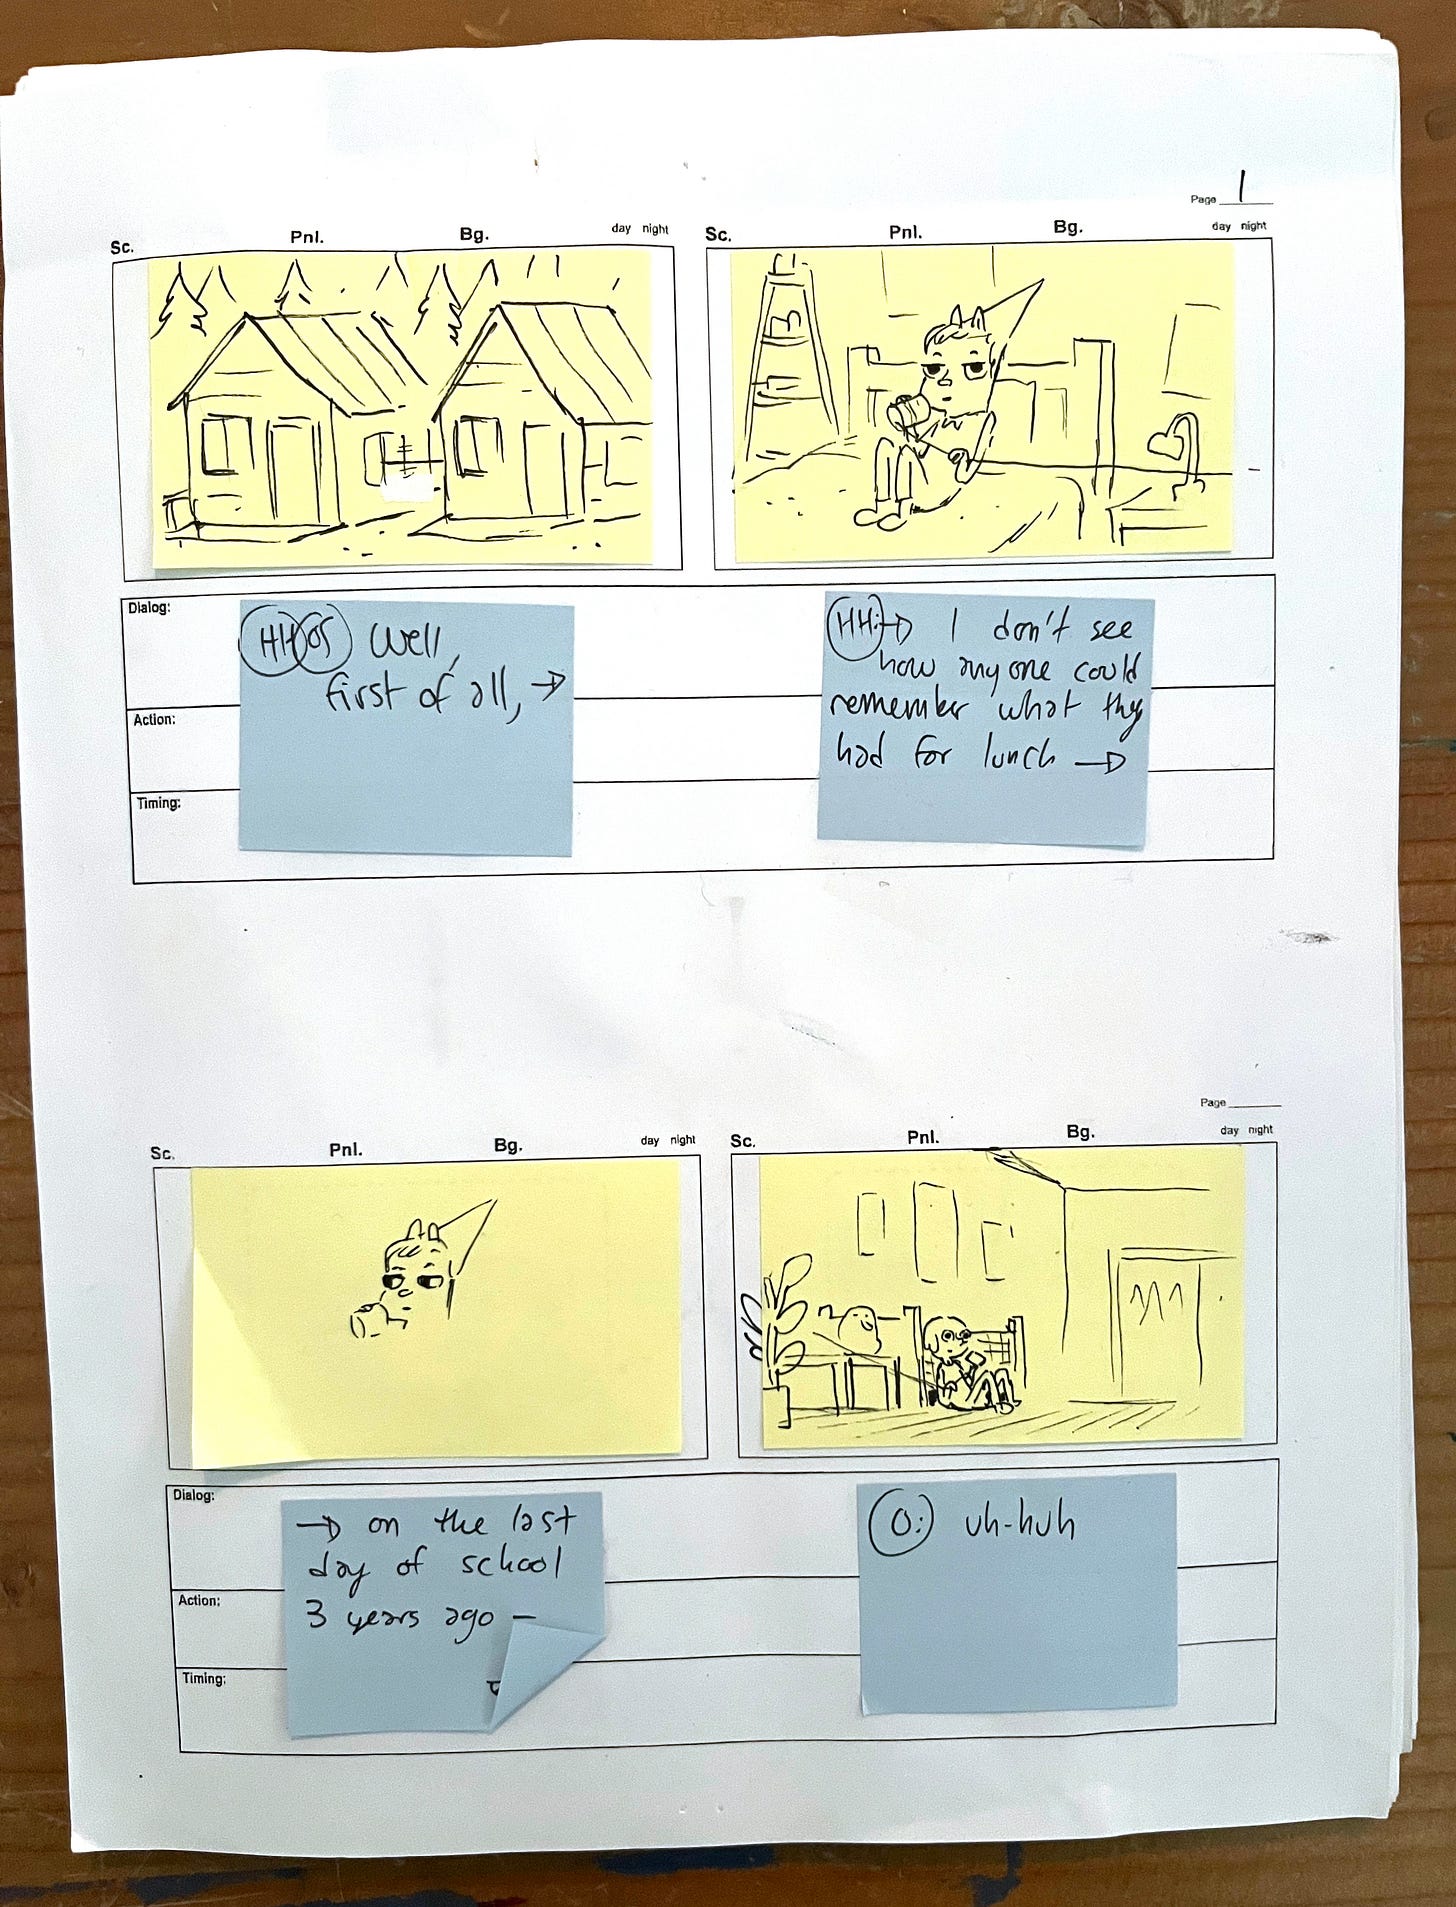 Page 1
Sc. Pnl. Bg. day night
Sc. Pnl. Bg. day night
Dialog:
HH OS Well,
first of all, →
HH: → I don't see
how anyone could
remember what they
had for lunch →
Action:
Timing:
Page
Sc. Pnl. Bg. day night
Sc. Pnl. Bg. day night
Dialog:
→ on the last
day of school
3 years ago –
O: uh-huh
Action:
Timing: